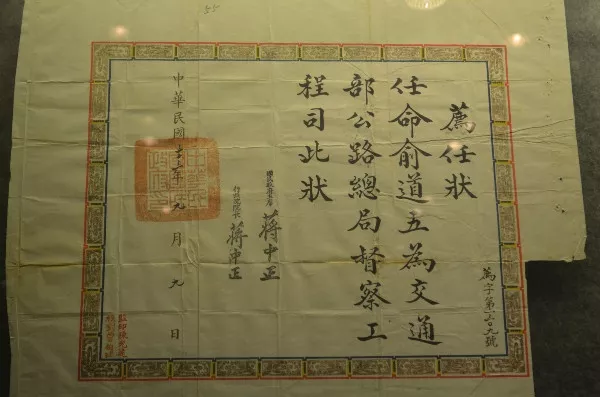 字第一〇九號
薦任狀
任命俞道五為交通
部公路總局督察工
程司此狀
國民政府主席 蔣中正
行政院院長 蔣中正
中華民國年月日
55